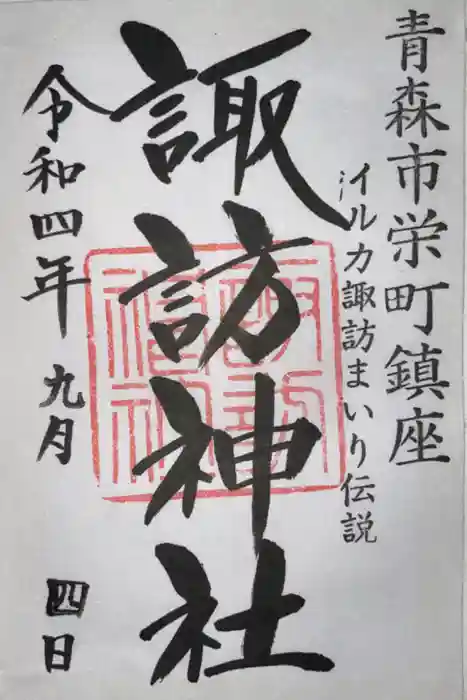 青森市栄町鎮座
イルカ諏訪まいり伝説
諏訪神社
令和四年 九月 四日